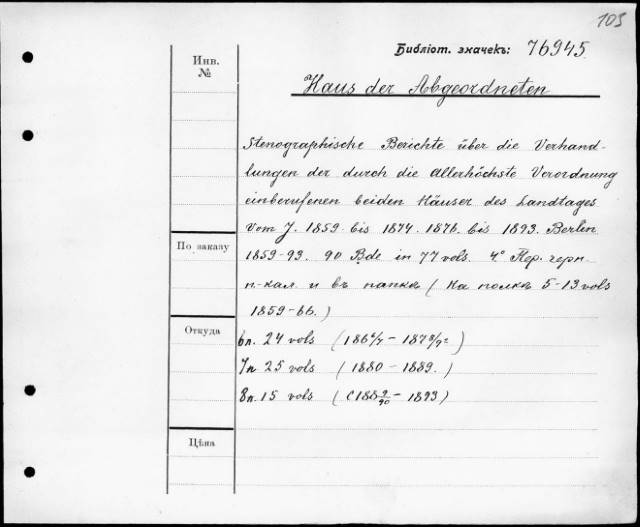 103
Библіот. значекъ: 76945
Инв.
№
Haus der Abgeordneten
Stenographische Berichte über die Verhand-
lungen der durch die Allerhöchste Verordnung
einberufenen beiden Häuser des Landtages
Vom J. 1859 bis 1874. 1876. bis 1893. Berlin
По заказу
1859-93. 90 Bde in 77 vols. 4° Пер. черн.
п-кал. и въ папкѣ (На полкѣ 5-13 vols
1859-66.)
Откуда
6п. 24 vols (1866/7 - 1878/72)
7п 25 vols (1880 - 1889.)
8п. 15 vols (С 1889/90 - 1893)
Цѣна